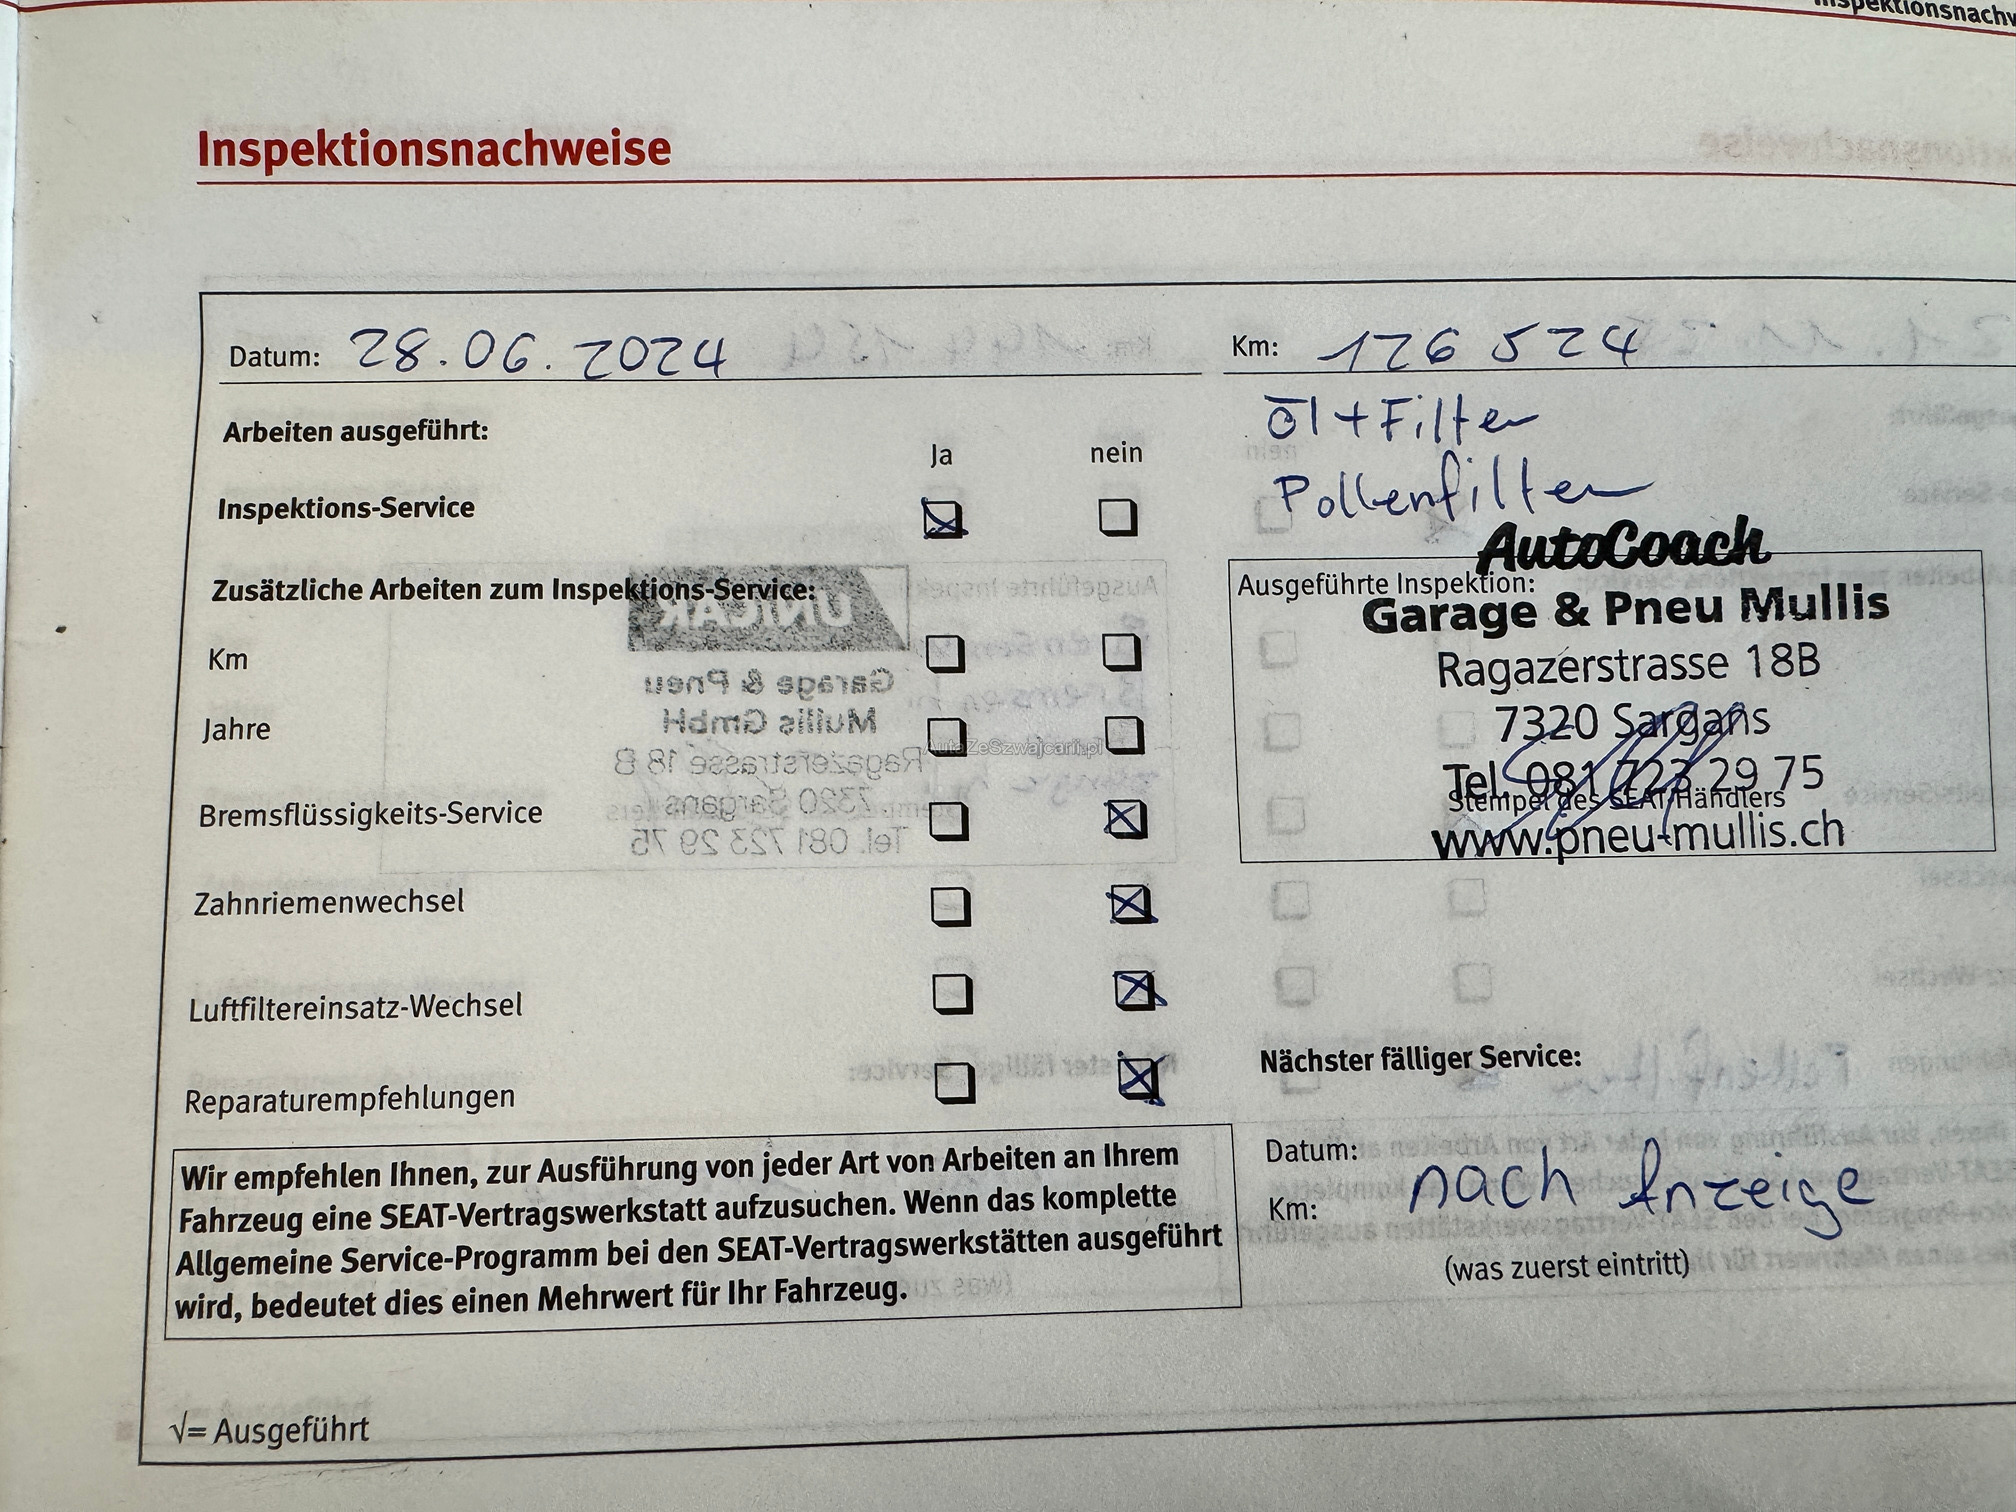 Inspektionsnachw
Inspektionsnachweise
Datum: 28.06.2024
Km: 126 524
Arbeiten ausgeführt:
Öl + Filter
Ja nein
Pollenfilter
Inspektions-Service
AutoCoach
Zusätzliche Arbeiten zum Inspektions-Service:
Ausgeführte Inspektion:
Garage & Pneu Mullis
Km
Ragazerstrasse 18B
Jahre
7320 Sargans
AutaZeSzwajcarii.pl
Tel. 081 723 29 75
Stempel des SEAT-Händlers
Bremsflüssigkeits-Service
www.pneu-mullis.ch
Zahnriemenwechsel
Luftfiltereinsatz-Wechsel
Reparaturempfehlungen
Nächster fälliger Service:
Datum:
Km: nach Anzeige
(was zuerst eintritt)
Wir empfehlen Ihnen, zur Ausführung von jeder Art von Arbeiten an Ihrem
Fahrzeug eine SEAT-Vertragswerkstatt aufzusuchen. Wenn das komplette
Allgemeine Service-Programm bei den SEAT-Vertragswerkstätten ausgeführt
wird, bedeutet dies einen Mehrwert für Ihr Fahrzeug.
√= Ausgeführt